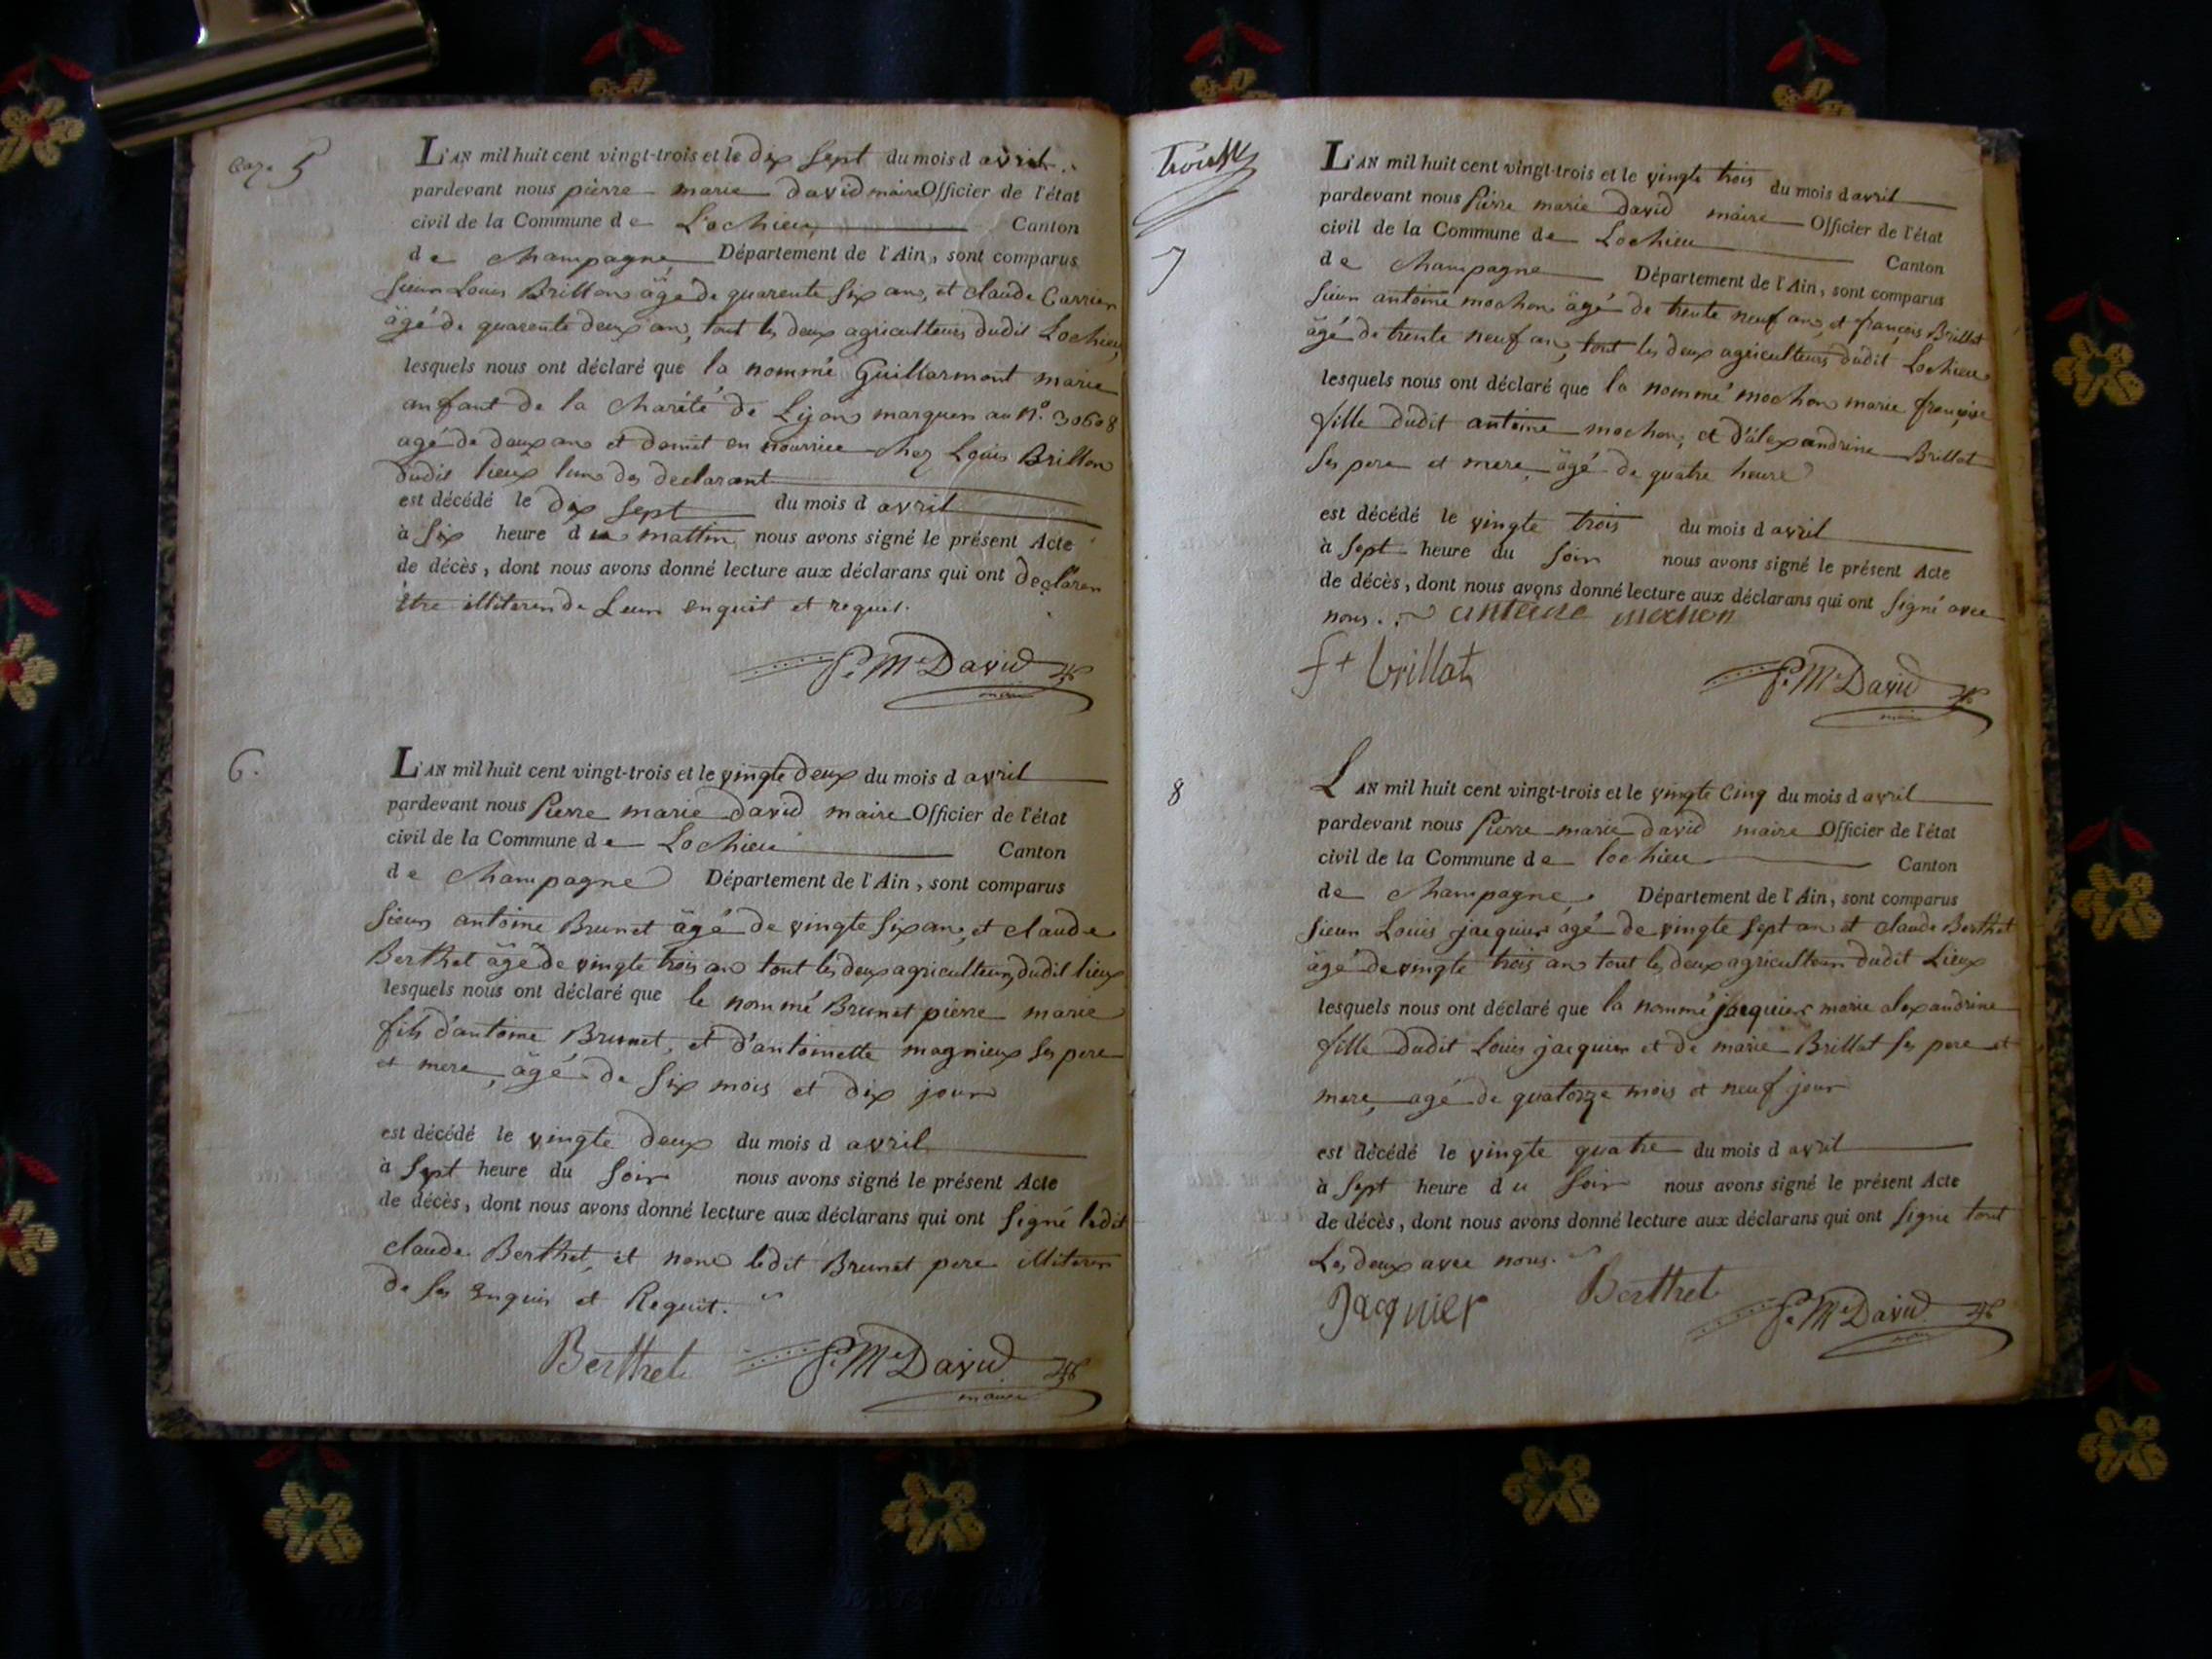 5
L'AN mil huit cent vingt-trois et le dix sept du mois d avril
pardevant nous pierre marie david maire Officier de l'état
civil de la Commune de Lochieu Canton
de champagne Département de l'Ain, sont comparus
sieur Louis Brillon âgé de quarente six an, et claude Carrier
âgé de quarente deux an, tout les deux agriculteurs dudit Lochieu
lesquels nous ont déclaré que la nommé Guillarmont marie
anfant de la charété de Lyon marquer au N.º 30608
agé de deux an et demit en nourrice chez Louis Brillon
dudit lieux lun des declarant
est décédé le dix sept du mois d avril
à six heure du mattin nous avons signé le présent Acte
de décès, dont nous avons donné lecture aux déclarans qui ont declaren
être illiteren de Leur enquit et requis.
P.e M.e David
maire
6.
L'AN mil huit cent vingt-trois et le vingte deux du mois d avril
pardevant nous Pierre marie david maire Officier de l'état
civil de la Commune de Lochieu Canton
de champagne Département de l'Ain, sont comparus
sieur antoine Brunet âgé de vingte six an, et claude
Berthet âgé de vingte trois an tout les deux agriculteurs dudit lieux
lesquels nous ont déclaré que le nommé Brunet pierre marie
fils d'antoine Brunet, et d'antoinette magnieux ses pere
et mere, âgé de six mois et dix jour
est décédé le vingte deux du mois d avril
à sept heure du soir nous avons signé le présent Acte
de décès, dont nous avons donné lecture aux déclarans qui ont signé ledit
claude Berthet, et none ledit Brunet pere illiteren
de ses enquis et Requit.
Berthet P.e M.e David
maire
7
L'AN mil huit cent vingt-trois et le vingte trois du mois d avril
pardevant nous Pierre marie david maire Officier de l'état
civil de la Commune de Lochieu Canton
de champagne Département de l'Ain, sont comparus
sieur antoine mochon âgé de trente neuf an, et françois Brillat
âgé de trente neuf an, tout les deux agriculteurs dudit Lochieu
lesquels nous ont déclaré que la nommé mochon marie françoise
fille dudit antoine mochon, et d'alexandrine Brillat
ses pere et mere, âgé de quatre heure
est décédé le vingte trois du mois d avril
à sept heure du soir nous avons signé le présent Acte
de décès, dont nous avons donné lecture aux déclarans qui ont signé avec
nous. antoine mochon
f+ brillat P.e M.e David
maire
8
L'AN mil huit cent vingt-trois et le vingte cinq du mois d avril
pardevant nous Pierre marie david maire Officier de l'état
civil de la Commune de lochieu Canton
de champagne, Département de l'Ain, sont comparus
sieur Louis jacquier agé de vingte sept an et claude Berthet
âgé de vingte trois an tout les deux agriculteurs dudit Lieux
lesquels nous ont déclaré que la nommé jacquier marie alexandrine
fille dudit Louis jacquier et de marie Brillat ses pere et
mere, agé de quatorze mois et neuf jour
est décédé le vingte quatre du mois d avril
à sept heure du soir nous avons signé le présent Acte
de décès, dont nous avons donné lecture aux déclarans qui ont signé tout
Les deux avec nous.
Jacquier Berthet P.e M.e David
maire